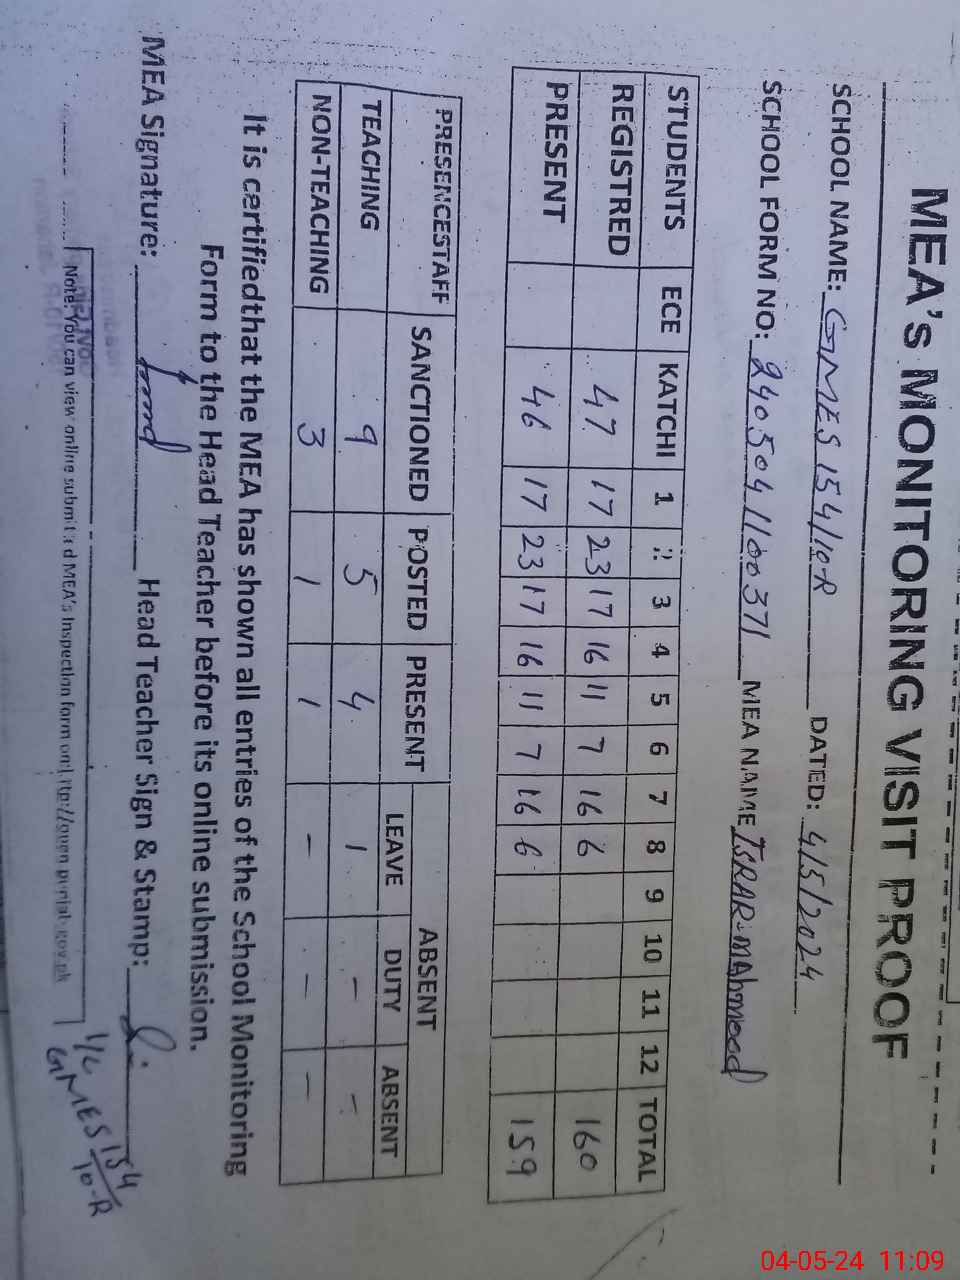 MEA's MONITORING VISIT PROOF
SCHOOL NAME: GMES 154/10-R DATED: 4/5/2024
SCHOOL FORM NO: 2405041100371 MEA NAME ISRAR MAhmood
STUDENTS ECE KATCHI 1 2 3 4 5 6 7 8 9 10 11 12 TOTAL
REGISTRED 47 17 23 17 16 11 7 16 6 160
PRESENT 46 17 23 17 16 11 7 16 6 159
PRESENCESTAFF SANCTIONED POSTED PRESENT ABSENT
LEAVE DUTY ABSENT
TEACHING 9 5 4 1 - -
NON-TEACHING 3 1 1 - - -
It is certifiedthat the MEA has shown all entries of the School Monitoring
Form to the Head Teacher before its online submission.
MEA Signature: Head Teacher Sign & Stamp:
I/C
GMES 154/10-R
Note: You can view online submitted MEA's Inspection form on
04-05-24 11:09